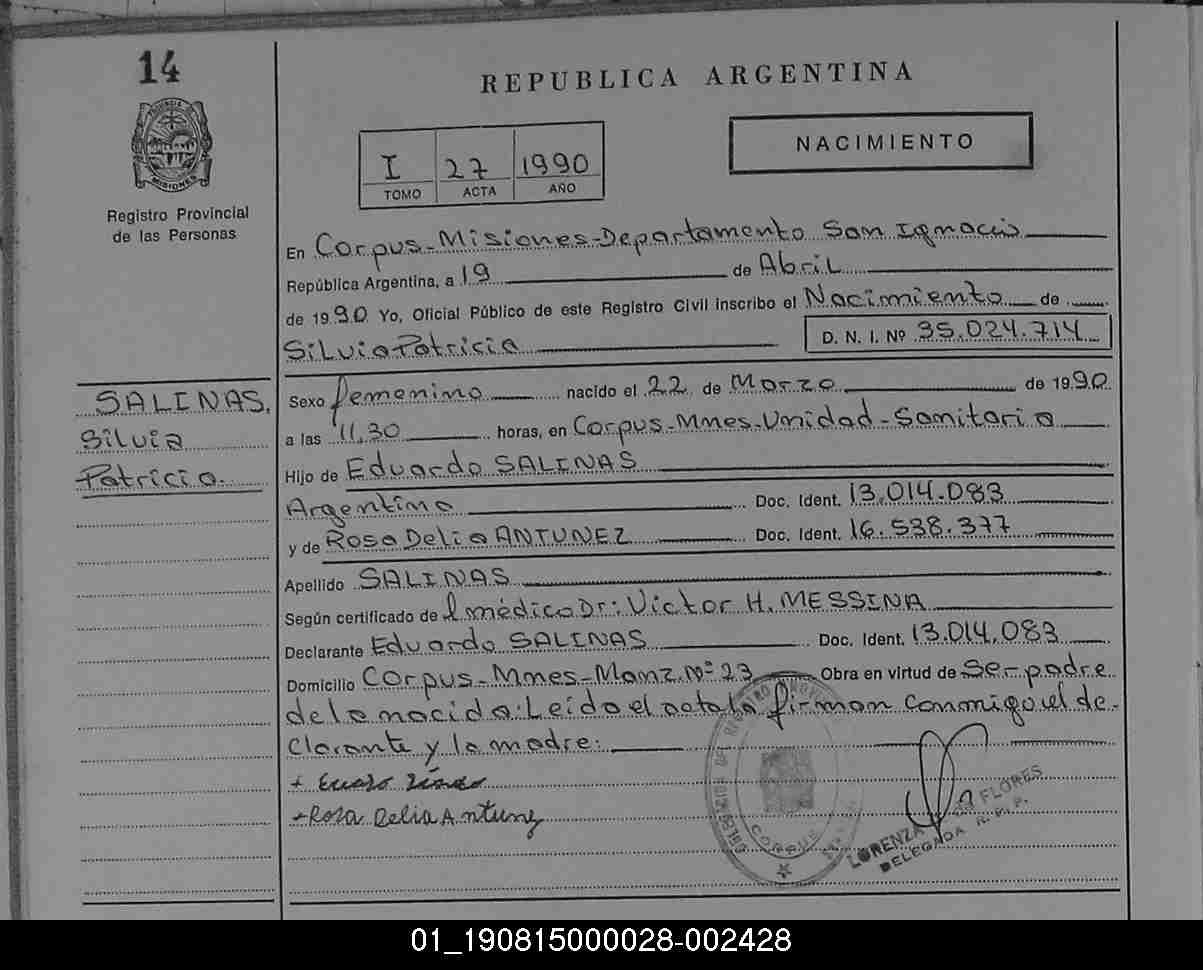 14
REPUBLICA ARGENTINA
PROVINCIA DE
MISIONES
Registro Provincial
de las Personas
I 27 1990
TOMO ACTA AÑO
NACIMIENTO
En Corpus-Misiones-Departamento San Ignacio
República Argentina, a 19 de Abril
de 1990 Yo, Oficial Público de este Registro Civil inscribo el Nacimiento de
Silvia Patricia D. N. I. Nº 35.024.714
SALINAS,
Silvia
Patricia
Sexo femenino nacido el 22 de Marzo de 1990
a las 11,30 horas, en Corpus-Mnes-Unidad-Sanitaria
Hijo de Eduardo SALINAS
Argentino Doc. Ident. 13.014.083
y de Rosa Delia ANTUNEZ Doc. Ident. 16.538.377
Apellido SALINAS
Según certificado de l médico Dr: Victor H. MESSINA
Declarante Eduardo SALINAS Doc. Ident. 13.014.083
Domicilio Corpus-Mnes-Manz.Nº 23 Obra en virtud de Ser-padre
de la nacida: Leida el acta la firman conmigo el de-
clarante y la madre:
+Rosa Delia Antunez
CORPUS
LORENZA DE FLORES
DELEGADA R. P. P.
01_190815000028-002428